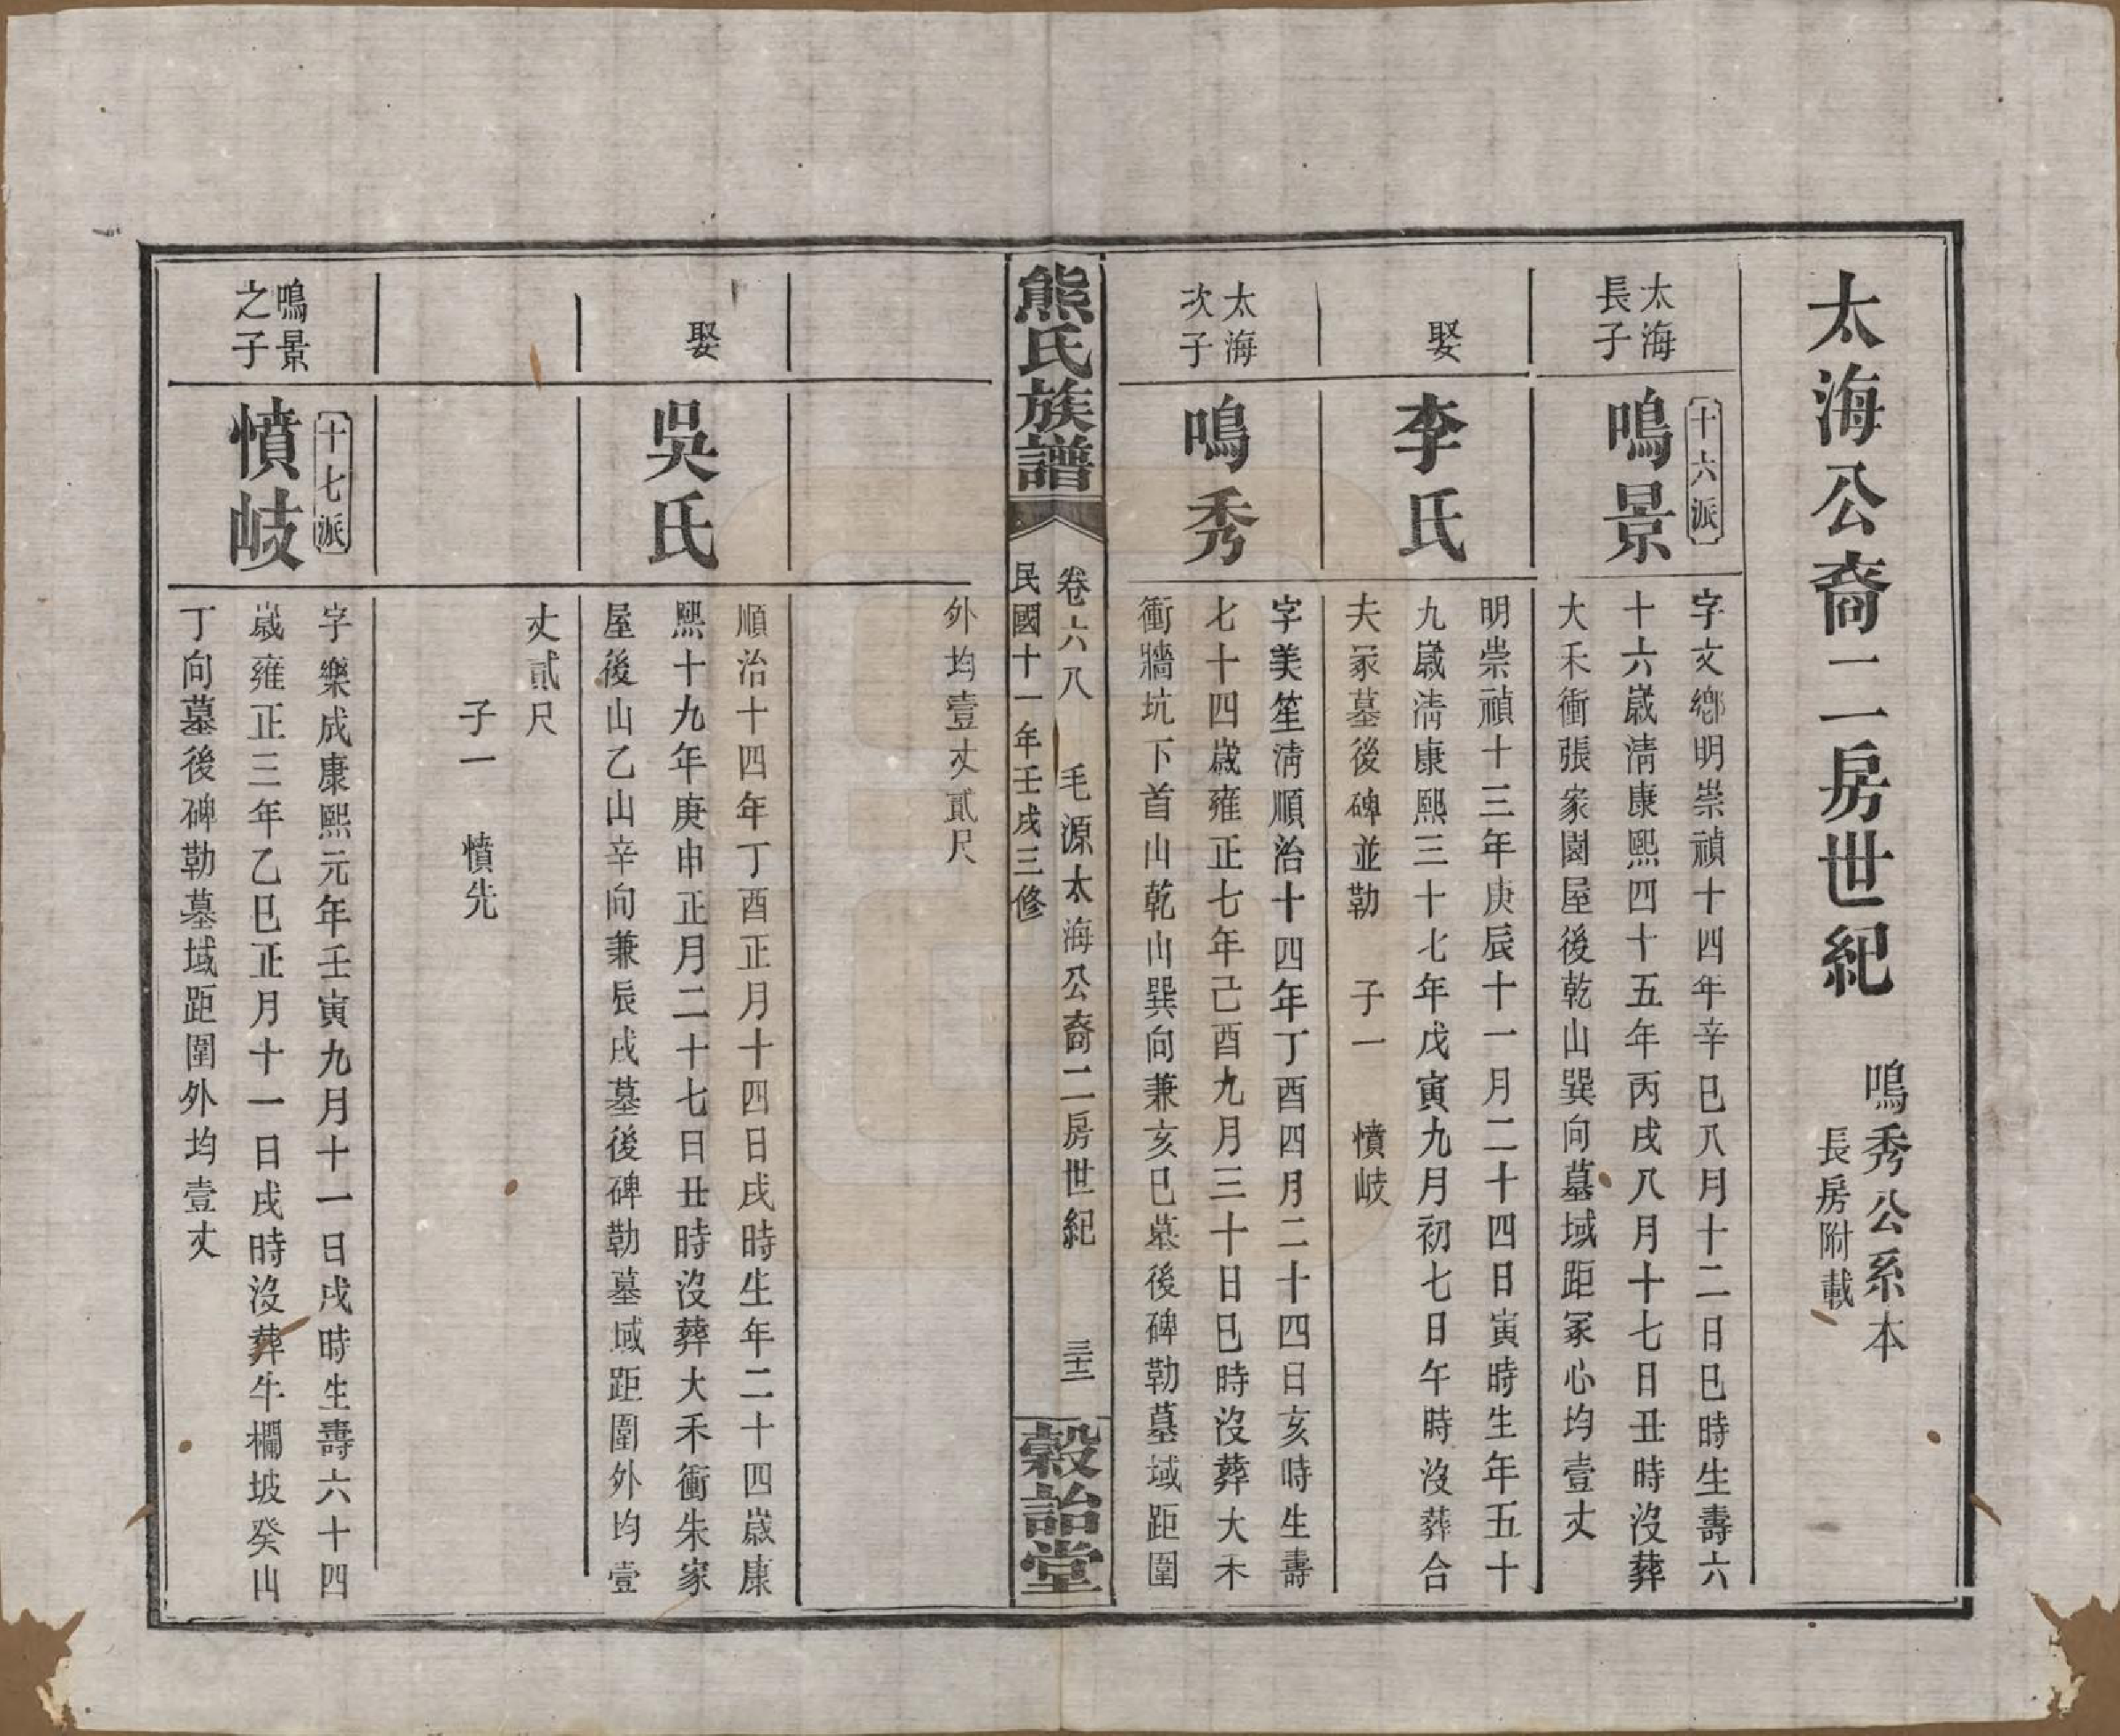 太海公裔二房世紀
鳴秀公系本
長房附載
太海
長子
十六派
鳴景
字文鄉明崇禎十四年辛巳八月十二日巳時生壽六
十六歲清康熙四十五年丙戌八月十七日丑時沒葬
大禾衝張家園屋後乾山巽向墓域距冢心均壹丈
娶
李氏
明崇禎十三年庚辰十一月二十四日寅時生年五十
九歲清康熙三十七年戊寅九月初七日午時沒葬合
夫冢墓後碑並勒 子一 憤岐
太海
次子
鳴秀
字美笙清順治十四年丁酉四月二十四日亥時生壽
七十四歲雍正七年己酉九月三十日巳時沒葬大禾
衝牆坑下首山乾山巽向兼亥巳墓後碑勒墓域距圍
熊氏族譜
卷六八 毛源太海公裔二房世紀 三十二
民國十一年壬戌三修
穀詒堂
外均壹丈貳尺
娶
吳氏
順治十四年丁酉正月十四日戌時生年二十四歲康
熙十九年庚申正月二十七日丑時沒葬大禾衝朱家
屋後山乙山辛向兼辰戌墓後碑勒墓域距圍外均壹
丈貳尺
子一 憤先
鳴景
之子
十七派
憤岐
字樂成康熙元年壬寅九月十一日戌時生壽六十四
歲雍正三年乙巳正月十一日戌時沒葬牛欄坡癸山
丁向墓後碑勒墓域距圍外均壹丈